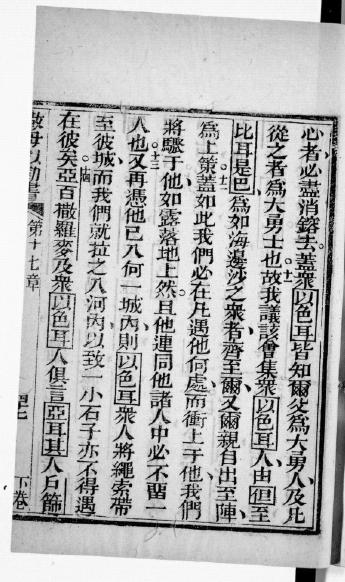 心者必盡消鎔去。蓋衆以色耳皆知爾父爲大勇人及凡
從之者爲大勇士也。十一故我議該會集衆以色耳人由但至
比耳是巴爲如海邊沙之衆者齊至爾又爾親自出至陣
爲上策。十二蓋如此我們必在凡遇他何處而衝上于他我們
將驟于他如露落地上然且他連同他諸人中必不留一
人也。十三又再憑他已入何一城內則以色耳衆人將繩索帶
至彼城而我們就拉之入河內以致一小石子亦不得遇
在彼矣。十四亞百撒羅麥及衆以色耳人俱言亞耳其人戶篩
第十七章
下卷